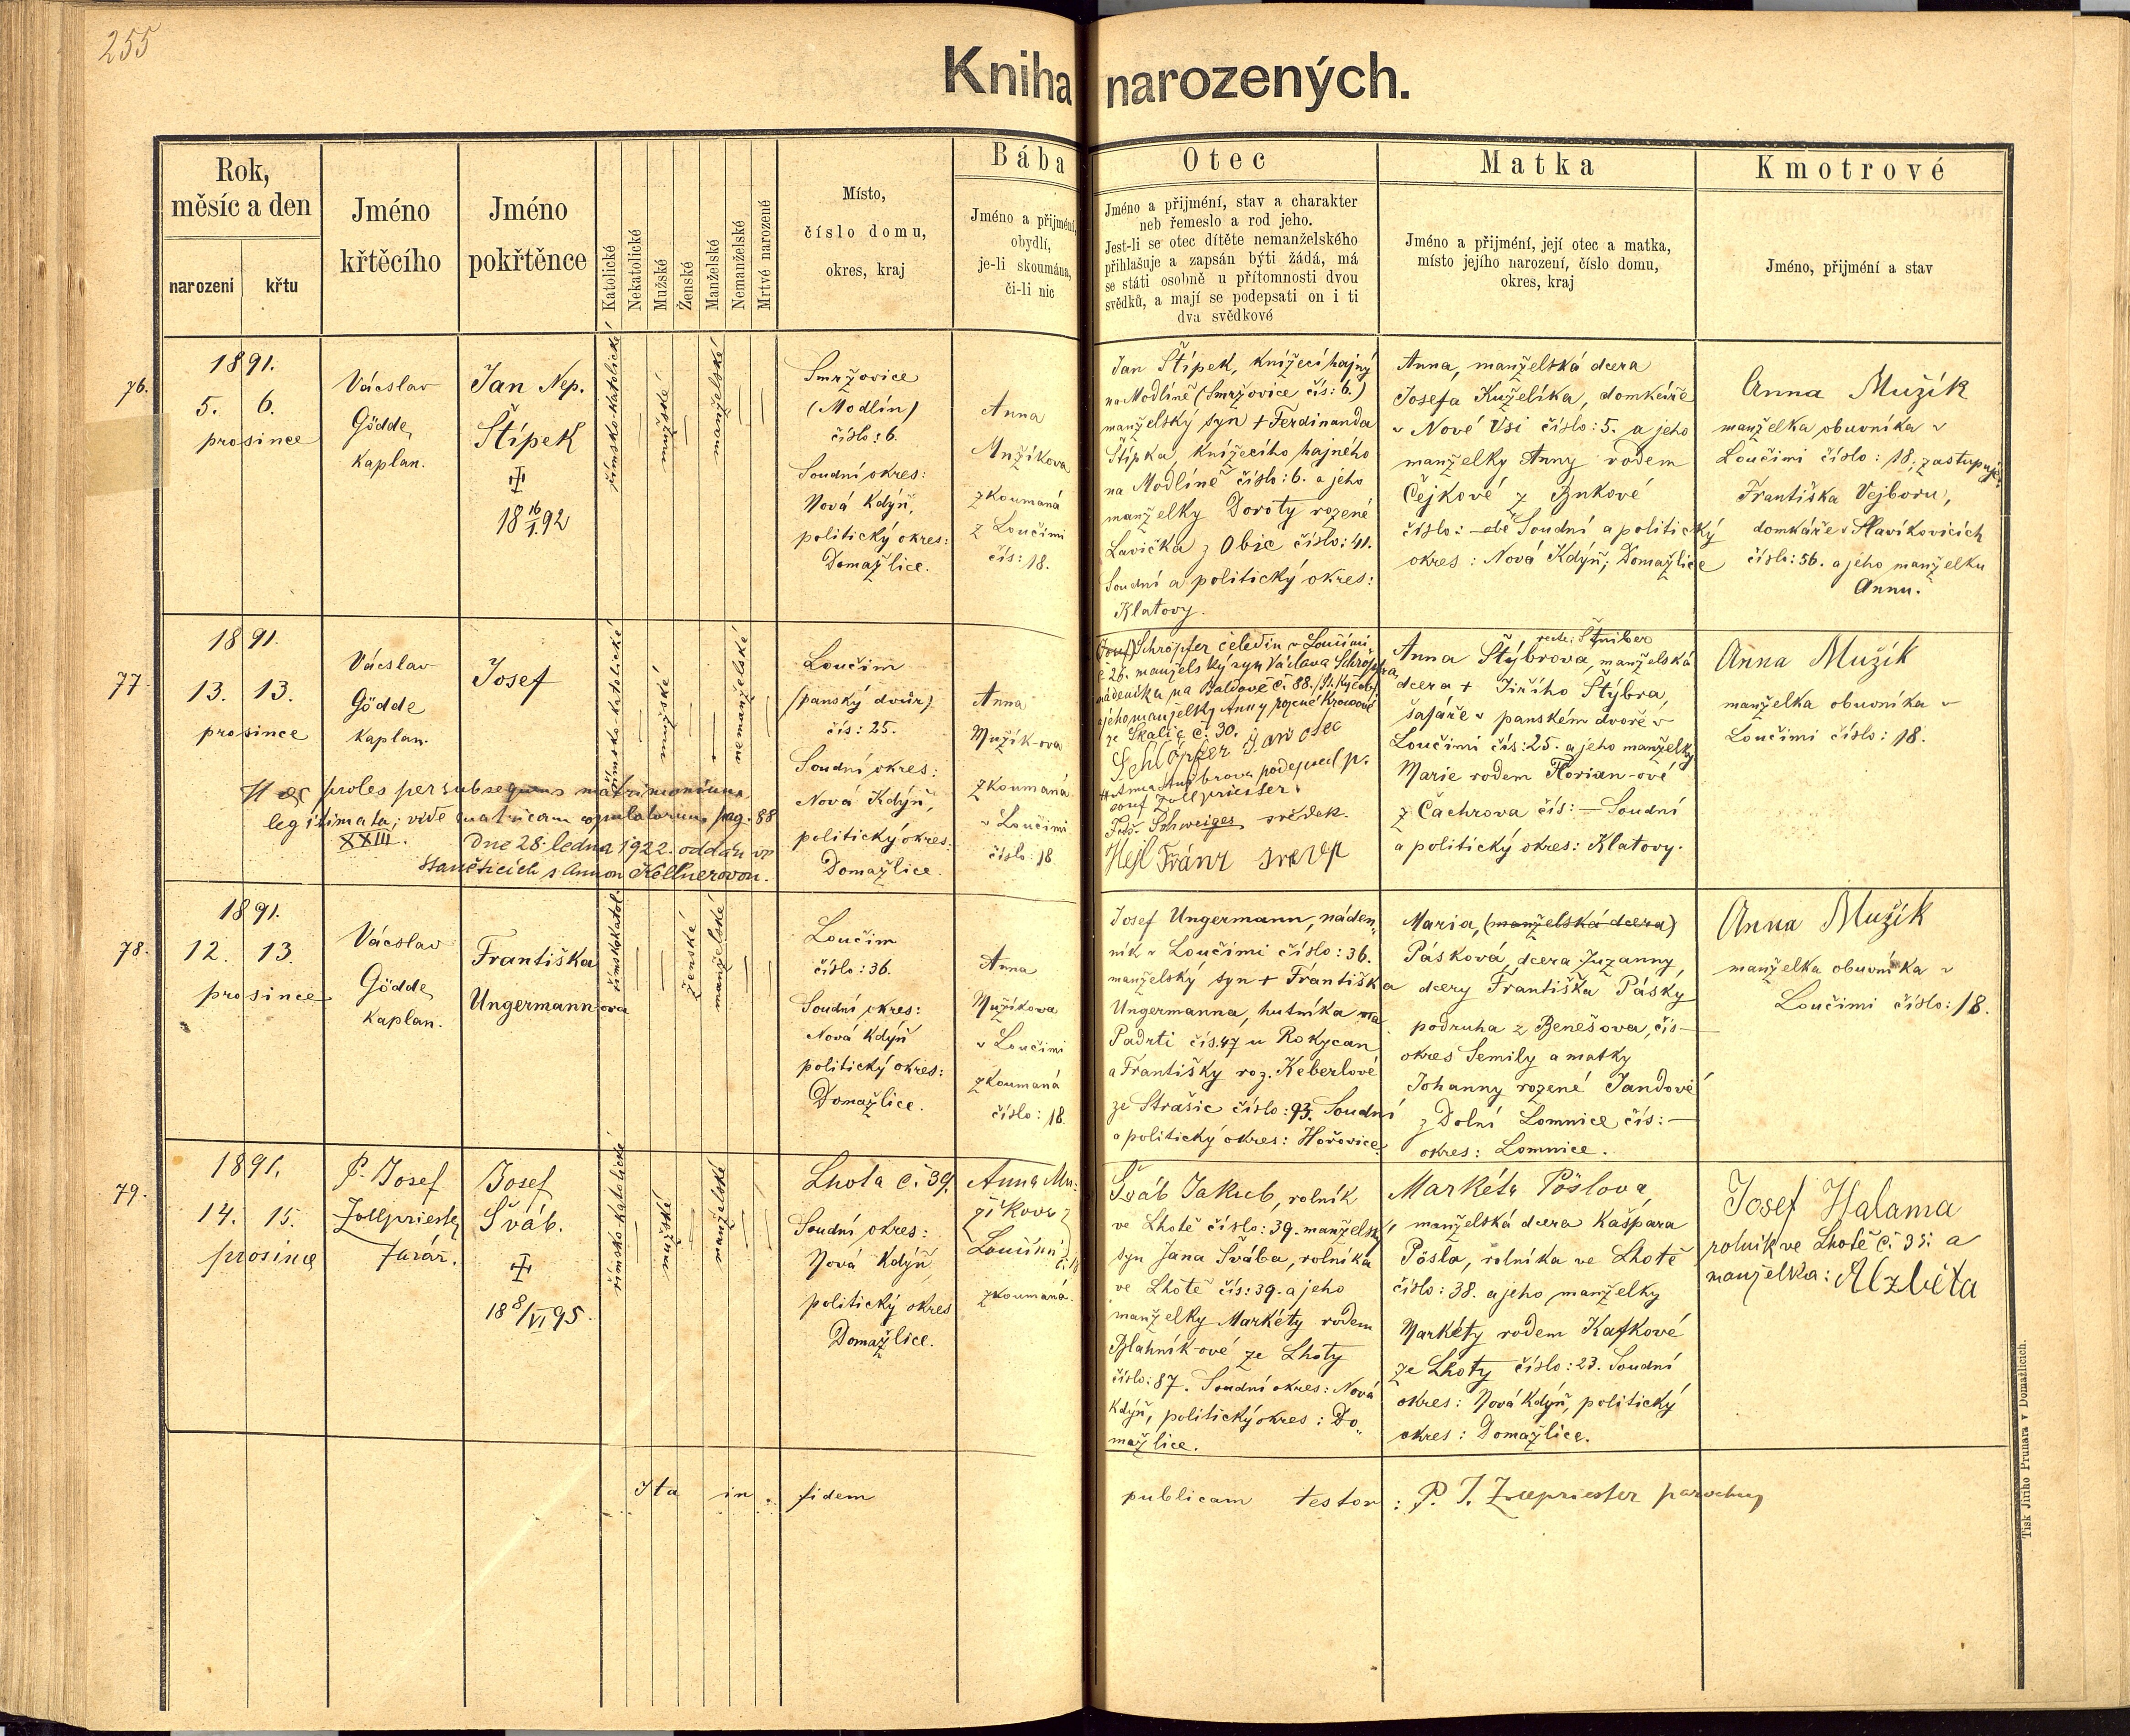 255
Kniha narozených.
Rok,
měsíc a den
narození
křtu
Jméno
křtěcího
Jméno
pokřtěnce
Katolické
Nekatolické
Mužské
Ženské
Manželské
Nemanželské
Mrtvé narozené
Místo,
číslo domu,
okres, kraj
Bába
Jméno a přijmení,
obydlí,
je-li skoumána,
či-li nic
Otec
Jméno a přijmení, stav a charakter
neb řemeslo a rod jeho.
Jest-li se otec dítěte nemanželského
přihlašuje a zapsán býti žádá, má
se státi osobně u přítomnosti dvou
svědků, a mají se podepsati on i ti
dva svědkové
Matka
Jméno a přijmení, její otec a matka,
místo jejího narození, číslo domu,
okres, kraj
Kmotrové
Jméno, přijmení a stav
76.
1891.
5. 6.
prosince
Václav
Gödde
Kaplan.
Jan Nep.
Štípek
18 16/I. 92
římsko-katolické
mužské
manželské
Smržovice
(Modlín)
číslo: 6.
Soudní okres:
Nová Kdýň,
politický okres:
Domažlice.
Anna
Mužíkova
zkoumaná
z Loučimi
čís: 18.
Jan Štípek, knížecí hajný
na Modlíně (Smržovice čís: 6.)
manželský syn + Ferdinanda
Štípka, knížecího hajného
na Modlíně číslo: 6. a jeho
manželky Doroty rozené
Lavička z Obic číslo: 41.
Soudní a politický okres:
Klatovy.
Anna, manželská dcera
Josefa Kuželíka, domkáře
v Nové Vsi číslo: 5. a jeho
manželky Anny rodem
Čejkové z
číslo: Soudní a politický
okres: Nová Kdýň; Domažlice
Anna Mužík
manželka obuvníka v
Loučimi číslo: 18; zastupuje
Františka Vejboru,
domkáře v Slavíkovicích
číslo: 56. a jeho manželku
Annu.
77.
1891.
13. 13.
prosince
Václav
Gödde
Kaplan.
Josef
římsko-katolické
mužské
nemanželské
Loučim
/panský dvůr/
čís: 25.
Soudní okres:
Nová Kdýň,
politický okres:
Domažlice.
Anna
Mužík-ova
zkoumaná
v Loučimi
číslo: 18
Haec proles per subsequens matrimonium
legitimata; vide matricam copulatorum pag. 88
XXIII.
Dne 28. ledna 1922. oddán v
Staněticích s Annou Kellnerovou.
Josef Schröpfer čeledín v Loučimi
č 26. manželský syn Václava Schröpfra,
nádeníka na Baldově č. 88.
a jeho manželky Anny rozené
ze Skalic č. 30.
podepsal p.
Josef Zollpriester
Schweiger svědek.
Hejl Fránz
rectè: Štuiber
Anna Štýbrova, manželská
dcera + Jiřího Štýbra,
šafáře v panském dvoře v
Loučimi čís: 25. a jeho manželky
Marie rodem Florian-ové
z Čachrova čís: — Soudní
a politický okres: Klatovy.
Anna Mužík
manželka obuvníka v
Loučimi číslo: 18.
78.
1891.
12. 13.
prosince
Václav
Gödde
Kaplan.
Františka
Ungermann-ova
římskokatol.
ženské
manželské
Loučim
číslo: 36.
Soudní okres:
Nová Kdýň
politický okres:
Domažlice.
Anna
Mužíkova
v Loučimi
zkoumaná
číslo: 18.
Josef Ungermann, náden-
ník v Loučimi číslo: 36.
manželský syn + Františka
Ungermanna, hutníka na
Padrti čís. 47 u Rokycan
a Františky roz. Keberlové
ze Strašic číslo: 93. Soudní
a politický okres: Hořovice.
Maria, (manželská dcera)
Pásková, dcera Zuzanny,
dcery Františka Pásky
podruha z Benešova, čís —
okres Semily a matky
Johanny rozené Jandové
z Dolní Lomnice čís: —
okres: Lomnice.
Anna Mužík
manželka obuvníka v
Loučimi číslo: 18.
79.
1891.
14. 15.
prosince
P. Josef
Zollpriester
farář.
Josef
Šváb.
18 8/VI 95.
římsko-katolické
mužské
manželské
Lhota č. 39.
Soudní okres:
Nová Kdýň
politický okres
Domažlice.
Anna Mu-
žíkova z
Loučimi
č. 18
zkoumaná.
Šváb Jakub, rolník
ve Lhotě číslo: 39. manželský
syn Jana Švába, rolníka
ve Lhotě čís: 39. a jeho
manželky Markéty rodem
Blahník-ové ze Lhoty
číslo: 87. Soudní okres: Nová
Kdýň, politický okres: Do-
mažlice.
Markéta Pöslova,
manželská dcera Kašpara
Pösla, rolníka ve Lhotě
číslo: 38. a jeho manželky
Markéty rodem Kafkové
ze Lhoty číslo: 23. Soudní
okres: Nová Kdýň, politický
okres: Domažlice.
Josef Halama
rolník ve Lhotě č. 35: a
manželka: Alzběta
Ita in fidem publicam testor: P. J. Zollpriester parochus
Tisk Jiřího Prunara v Domažlicích.